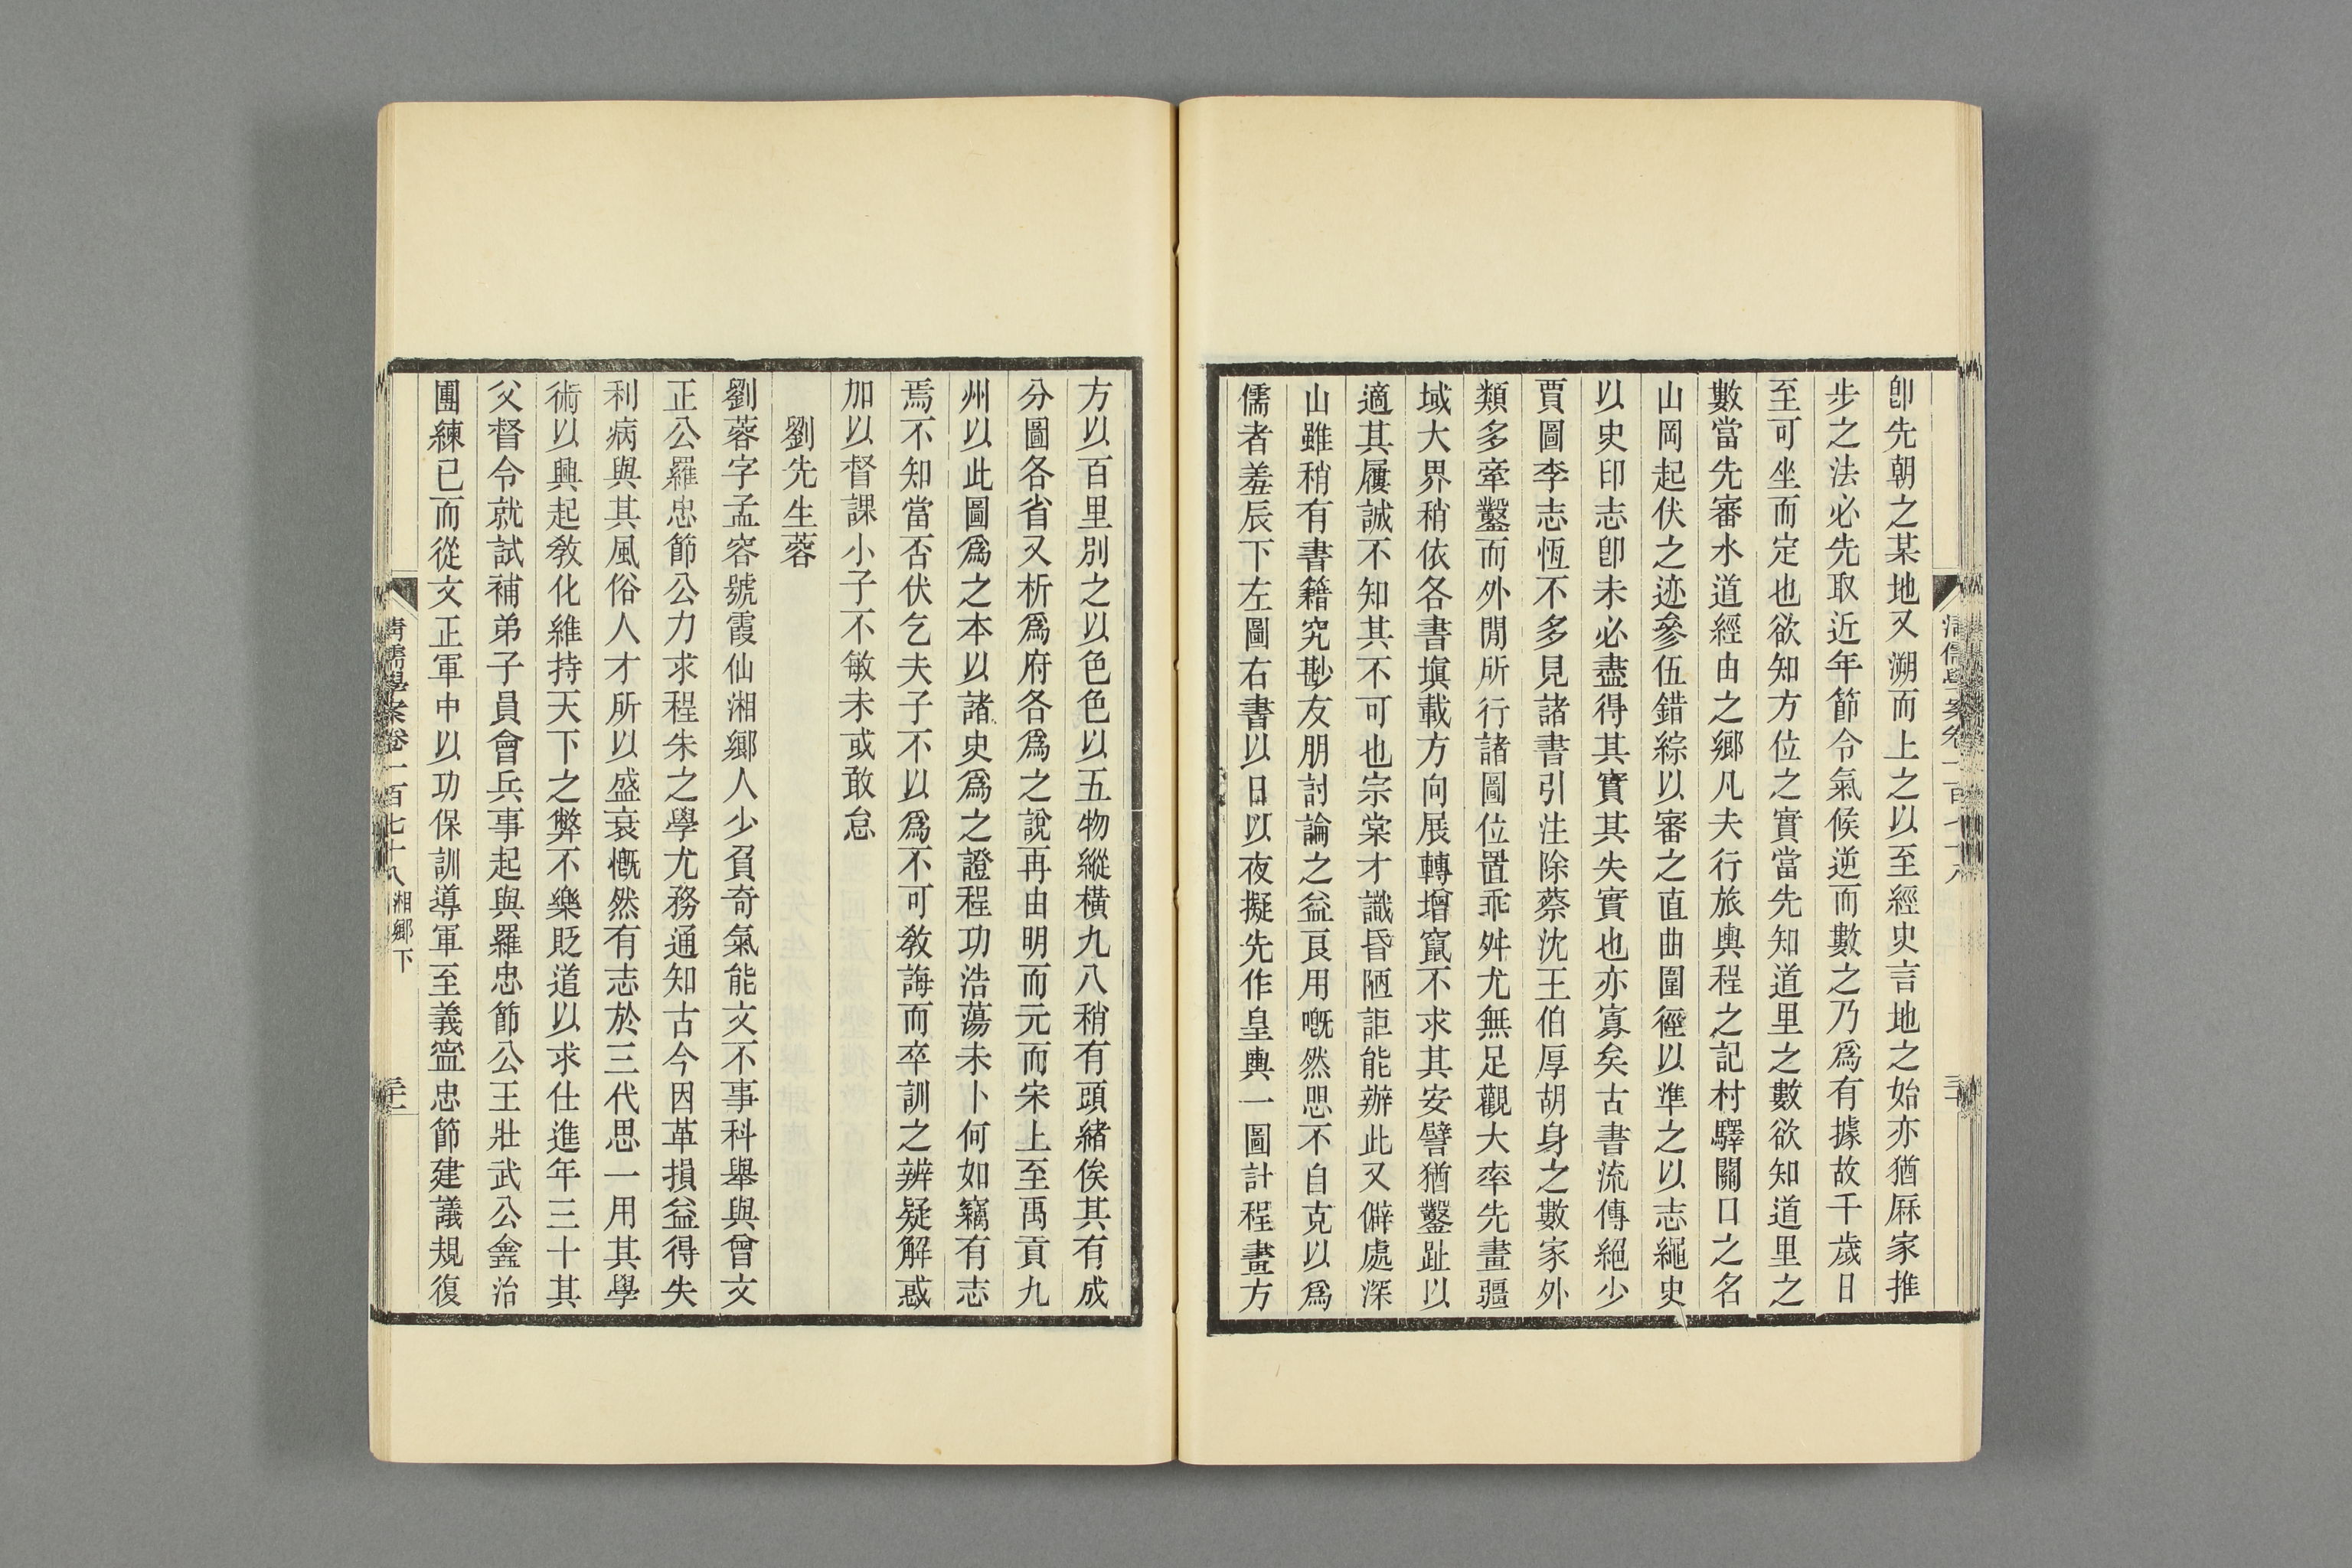 卽先朝之某地又溯而上之以至經史言地之始亦猶厤家推
步之法必先取近年節令氣候逆而數之乃爲有據故千歲日
至可坐而定也欲知方位之實當先知道里之數欲知道里之
數當先審水道經由之鄉凡夫行旅輿程之記村驛關口之名
山岡起伏之迹參伍錯綜以審之直曲圍徑以準之以志繩史
以史印志卽未必盡得其實其失實也亦寡矣古書流傳絕少
賈圖李志恆不多見諸書引注除蔡沈王伯厚胡身之數家外
類多牽鑿而外閒所行諸圖位置乖舛尤無足觀大率先畫疆
域大界稍依各書塡載方向展轉增竄不求其安譬猶鑿趾以
適其屨誠不知其不可也宗棠才識昏陋詎能辦此又僻處深
山雖稍有書籍究尠友朋討論之益㫐用嘅然思不自克以爲
儒者羞辰下左圖右書以日以夜擬先作皇輿一圖計程畫方
清儒學案卷一百七十八
方以百里別之以色色以五物縱橫九八稍有頭緒俟其有成
分圖各省又析爲府各爲之說再由明而元而宋上至禹貢九
州以此圖爲之本以諸史爲之證程功浩蕩未卜何如竊有志
焉不知當否伏乞夫子不以爲不可敎誨而卒訓之辨疑解惑
加以督課小子不敏未或敢怠
劉先生蓉
劉蓉字孟容號霞仙湘鄉人少負奇氣能文不事科舉與曾文
正公羅忠節公力求程朱之學尤務通知古今因革損益得失
利病與其風俗人才所以盛衰慨然有志於三代思一用其學
術以興起敎化維持天下之弊不樂貶道以求仕進年三十其
父督令就試補弟子員會兵事起與羅忠節公王壯武公鑫治
團練已而從文正軍中以功保訓導軍至義寧忠節建議規復
清儒學案卷一百七十八 湘鄉下